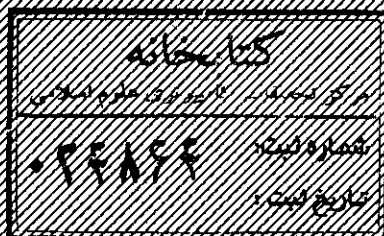 کتابخانه
مرکز تحقیقات کامپیوتری علوم اسلامی
شماره ثبت: ۰۳۴۸۶۴
تاریخ ثبت: